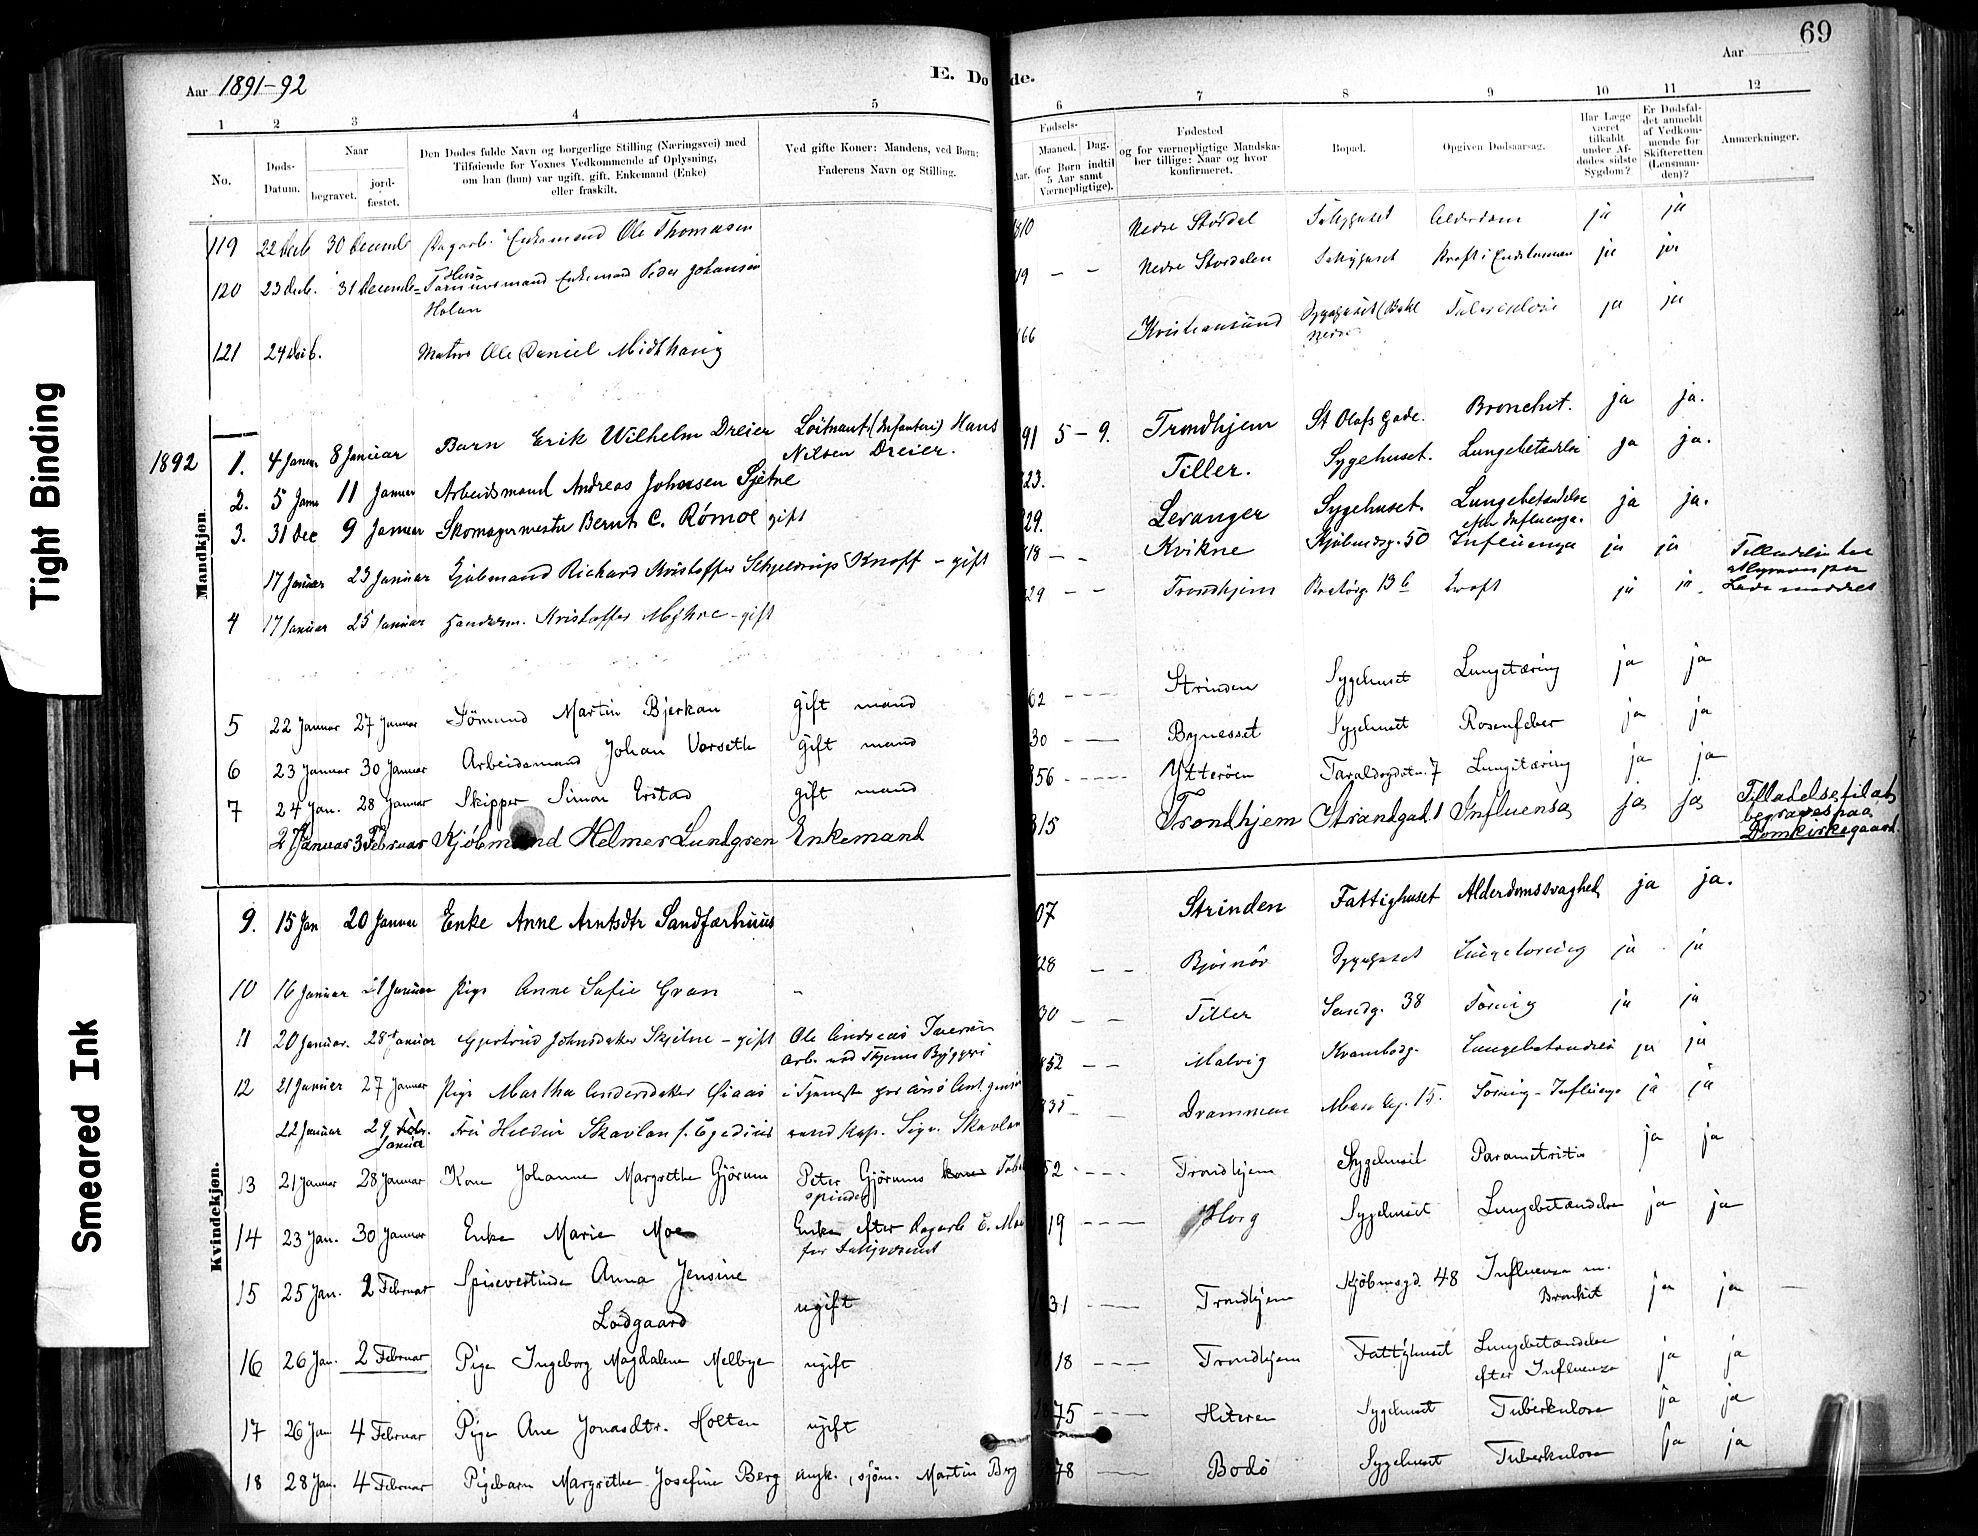 69
Aar 1891-92
E. Døde.
Aar
1 2 3 4 5 6 7 8 9 10 11 12
No.
Døds-Datum.
Naar
begravet.
jord-fæstet.
Den Dødes fulde Navn og borgerlige Stilling (Næringsvei) med
Tilføiende for Voxnes Vedkommende af Oplysning,
om han (hun) var ugift, gift, Enkemand (Enke)
eller fraskilt.
Ved gifte Koner: Mandens, ved Børn:
Faderens Navn og Stilling.
Fødsels-
Aar.
Maaned. Dag.
(for Børn indtil
5 Aar samt
Værnepligtige).
Fødested
og for værnepligtige Mandska-
ber tillige: Naar og hvor
konfirmeret.
Bopæl.
Opgiven Dødsaarsag.
Har Læge
været
tilkaldt
under Af-
dødes sidste
Sygdom?
Er Dødsfal-
det anmeldt
af Vedkom-
mende for
Skifteretten
(Lensman-
den)?
Anmærkninger.
119 22 Decb 30 Decemb Dagarb. Enkemand Ole Thomasen 810 Nedre Stördal Alderdom ja ja
120 23 Decb. 31 Decemb Enkemand Peder Johansen 19 - - Nedre Stordalen ja ja
Holan
121 24 Decb. Matros Ole Daniel Midthaug 66 Kristiansund ja ja
1892
Mandkjøn.
1. 4 Januar 8 Januar Barn Erik Wilhelm Dreier Löitnant (Infanteri) Hans 91 5 - 9. Trondhjem St Olafs Gade. Bronchit. ja ja.
Nilsen Dreier.
2. 5 Janu 11 Januar Arbeidsmand Andreas Johnsen Sjetne 23. Tiller. Sygehuset. Lungebetændelse ja ja.
3. 31 Dec 9 Januar Skomagermester Bernt C. Römoe gift 29. Levanger Sygehuset. Lungebetændelse ja ja.
efter Influenza.
17 Januar 23 Januar Kjöbmand Richard Kristoffer Schjeldrup Knoff - gift 18 - - Kvikne Kjöbmdsg. 50 Influenza ja ja
4 17 Januar 25 Januar Kristoffer Myhre - gift 29 - - Trondhjem 13 b ja ja
5 22 Januar 27 Januar Sömand Martin Bjerkan gift mand 62 - - Strinden Sygehuset Lungetæring ja ja
6 23 Januar 30 Januar Arbeidsmand Johan Vorseth gift mand 30 - - Bynesset Sygehuset Rosenfeber ja ja
7 24 Jan. 28 Januar Skipper Simon Erstad gift mand 856 - - Ytteröen 7 Lungetæring ja ja
27 Januar 3 Februar Kjöbmand Helmer Lundgren Enkemand 815 Trondhjem Strandgad. 1 Influensa ja ja Tilladelse til at
begraves paa
Domkirkegaard
Kvindekjøn.
9. 15 Jan 20 Januar Enke Anne Arntsdtr Sandfærhuus 07 Strinden Fattighuset Alderdomssvaghed ja ja.
10 16 Januar 21 Januar Pige Anne Sofie Gran - 28 - - Bjørnör Sygehuset Lungetæring ja ja
11 20 Januar. 28 Januar Gjertrud Johnsdatter - gift Ole Andreas Iversen 30 - - Tiller Sandg. 38 Tæring ja ja
12 21 Januar 27 Januar Pige Martha Andersdatter Öiaas 852 - - Malvig Lungebetændelse ja ja
22 Januar 29 Febr. Fru Skavlan f. Egedius Sigv. Skavlan 835 - Drammen 15. Tæring - Influenza ja ja
Januar
13 21 Januar 28 Januar Kone Johanne Margrethe Gjörum Peter Gjörums kone 52 - - Trondhjem Sygehuset Parametritis ja ja
spinder
14 23 Jan. 30 Januar Enke Marie Moe Enke efter Dagarb E. Moe 19 - - Horg Sygehuset Lungebetændelse ja ja
15 25 Jan. 2 Februar Spisevertinde Anna Jensine ugift 31 - - Trondhjem Kjöbmgd. 48 Influenza m. ja ja -
Lodgaard Bronkit
16 26 Jan. 2 Februar Pige Ingeborg Magdalene Melbye ugift 18 - - Trondhjem Fattighuset Lungebetændelse ja ja
efter Influenza
17 26 Jan 4 Februar Pige Ane Jonasdtr. Holten ugift 75 - - Hiteren Sygehuset Tuberkulose ja ja
18 28 Jan. 4 Februar Pigebarn Margrethe Josefine Berg sjöm. Martin Berg 78 - Bodö Sygehuset Tuberkulose ja ja
Tight Binding
Smeared Ink